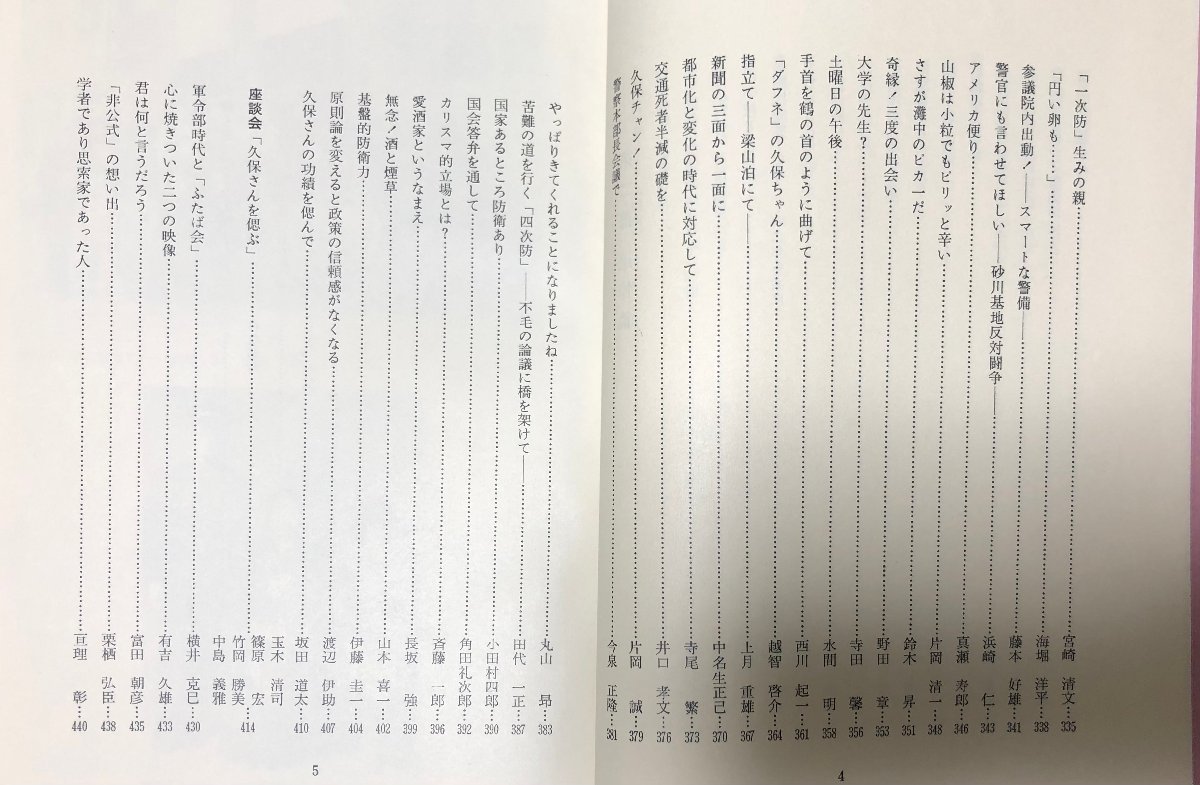 「一次防」生みの親……宮崎 清文…335
「円い卵も……」……海堀 洋平…338
参議院内出動！――スマートな警備――……藤本 好雄…341
警官にも言わせてほしい――砂川基地反対闘争――……浜崎 仁…343
アメリカ便り……真瀬 寿郎…346
山椒は小粒でもピリッと辛い……片岡 清一…348
さすが灘中のピカ一だ……鈴木 昇…351
奇縁！三度の出会い……野田 章…353
大学の先生？……寺田 馨…356
土曜日の午後……水間 明…358
手首を鶴の首のように曲げて……西川 起一…361
「ダフネ」の久保ちゃん……越智 啓介…364
指立て――梁山泊にて――……上月 重雄…367
新聞の三面から一面に……中名生正己…370
都市化と変化の時代に対応して……寺尾 繁…373
交通死者半減の礎を……井口 孝文…376
久保チャン！……片岡 誠…379
警察本部長会議で……今泉 正隆…381
4
やっぱりきてくれることになりましたね……丸山 昻…383
苦難の道を行く「四次防」――不毛の論議に橋を架けて――……田代 一正…387
国家あるところ防衛あり……小田村四郎…390
国会答弁を通して……角田礼次郎…392
カリスマ的立場とは？……斉藤 一郎…396
愛酒家というなまえ……長坂 強…399
無念！酒と煙草……山本 喜一…402
基盤的防衛力……伊藤 圭一…404
原則論を変えると政策の信頼感がなくなる……渡辺 伊助…407
久保さんの功績を偲んで……坂田 道太…410
座談会「久保さんを偲ぶ」……玉木 清司
篠原 宏…414
竹岡 勝美
中島 義雅
軍令部時代と「ふたば会」……横井 克巳…430
心に焼きついた二つの映像……有吉 久雄…433
君は何と言うだろう……富田 朝彦…435
「非公式」の想い出……栗栖 弘臣…438
学者であり思索家であった人……亘理 彰…440
5